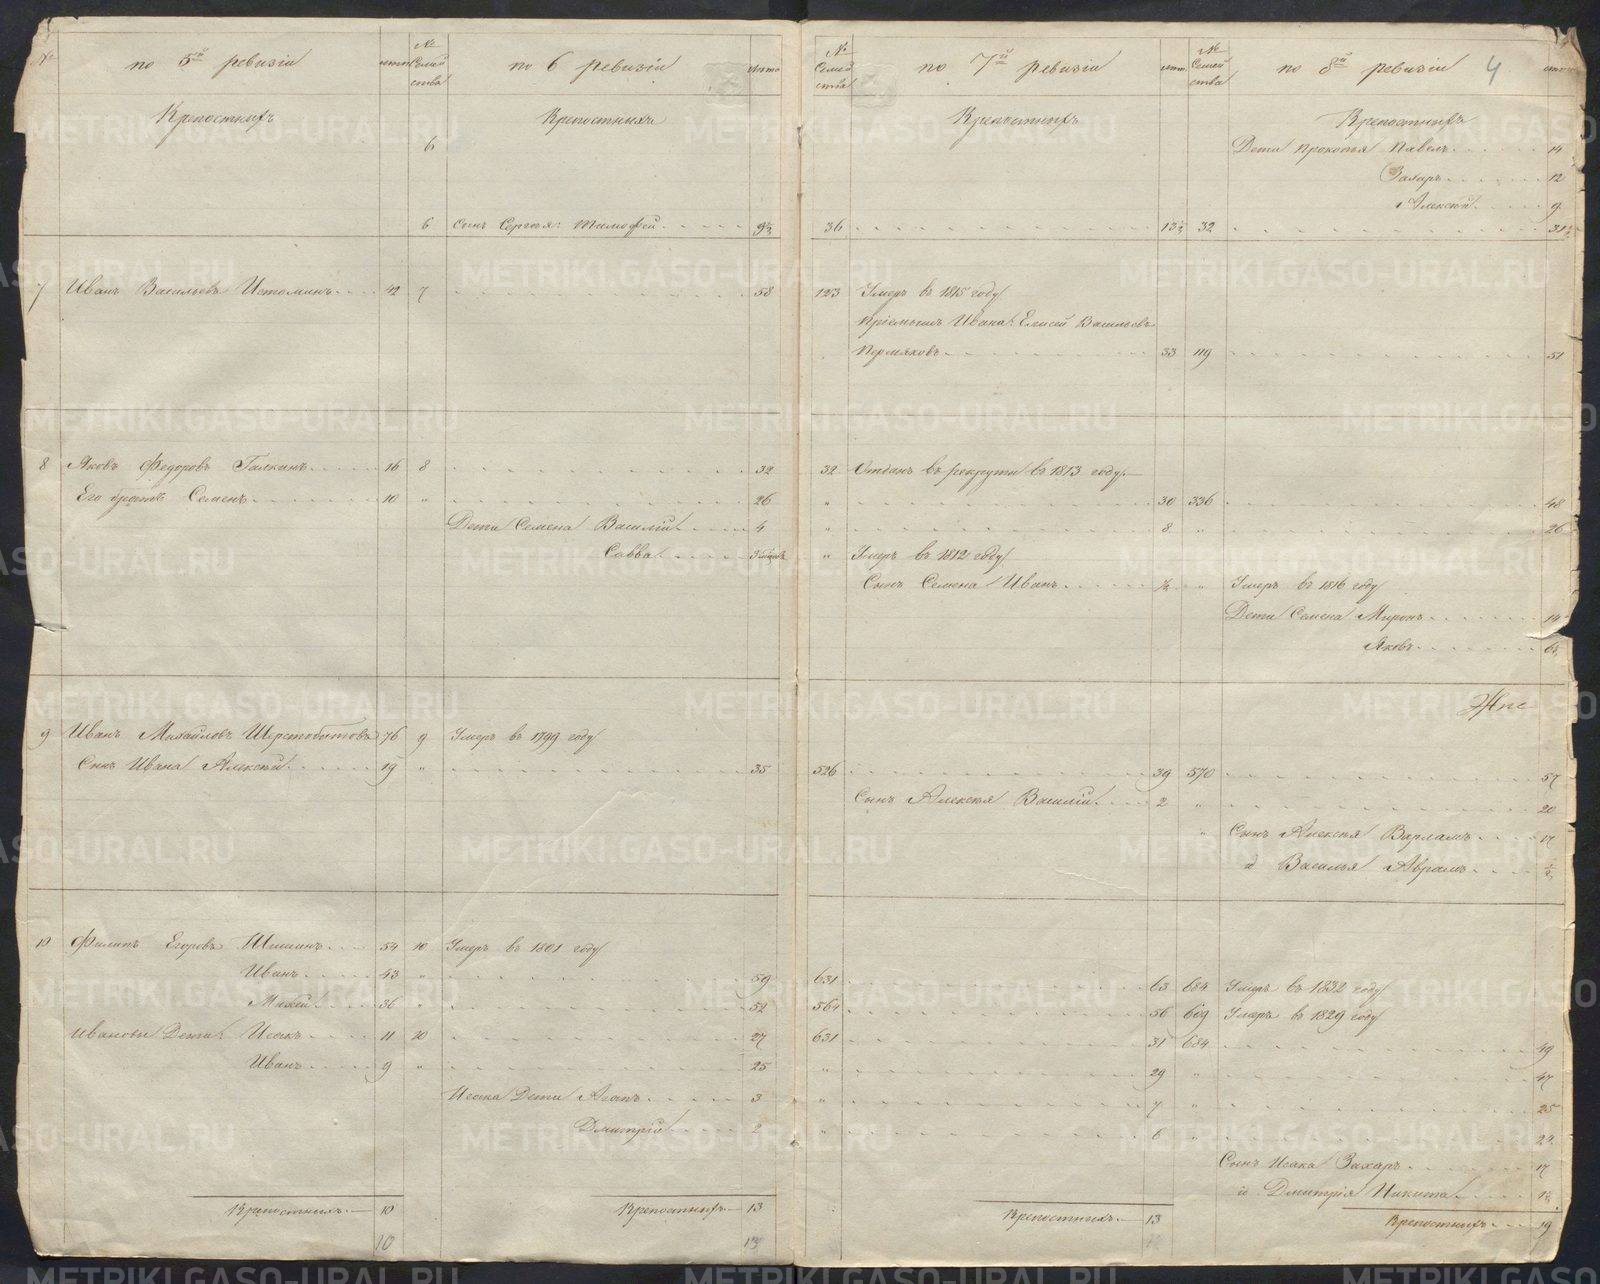 № по 5й ревизіи лѣта № Семейства по 6 ревизіи лѣта № Семейства по 7й ревизіи лѣта № Семейства по 8й ревизіи 4 лѣта
Крепостныхъ Крепостныхъ Крепостныхъ Крепостныхъ
6 Дети Прокопья Павелъ 14
Захаръ 12
и Алексѣй 9
6 Сынъ Сергѣя: Тимофей 36 32
7 Иванъ Васильевъ Истоминъ 42 7 58 123 Умеръ въ 1815 году
Пріемышъ Ивана: Елисей Васильевъ
Пермяковъ 33 119 51
8 Яковъ Федоровъ Галкинъ 16 8 32 32 Отданъ въ рекруты въ 1813 году
Его братъ Семенъ 10 " 26 " 30 336 48
Дети Семена Василій 4 " 8 " 26
Савва " Умеръ въ 1812 году
Сынъ Семена Иванъ ½ " Умеръ въ 1816 году
Дети Семена Миронъ 14
Яковъ
9 Иванъ Михайловъ Шерстобитовъ 76 9 Умеръ въ 1799 году
Сынъ Ивана Алексѣй 19 " 35 526 39 570 57
Сынъ Алексѣя Василій 2 " 20
" Сынъ Алексѣя Варламъ 17
и Василья Аврамъ ½
10 Филипъ Егоровъ Шишинъ 54 10 Умеръ въ 1801 году
Иванъ 43 " 59 631 63 684 Умеръ въ 1832 году
Михей 36 " 52 564 56 609 Умеръ въ 1829 году
Ивановы Дети: Исакъ 11 10 27 631 31 684 49
Иванъ 9 " 25 " 29 " 47
Исака Дети Агапъ 3 " 7 " 25
Дмитрій 2 " 6 " 24
Сынъ Исака Захаръ 17
и Дмитрія Никита
Крепостныхъ 10 Крепостныхъ 13 Крепостныхъ 13 Крепостныхъ 19
10 13
METRIKI.GASO-URAL.RU